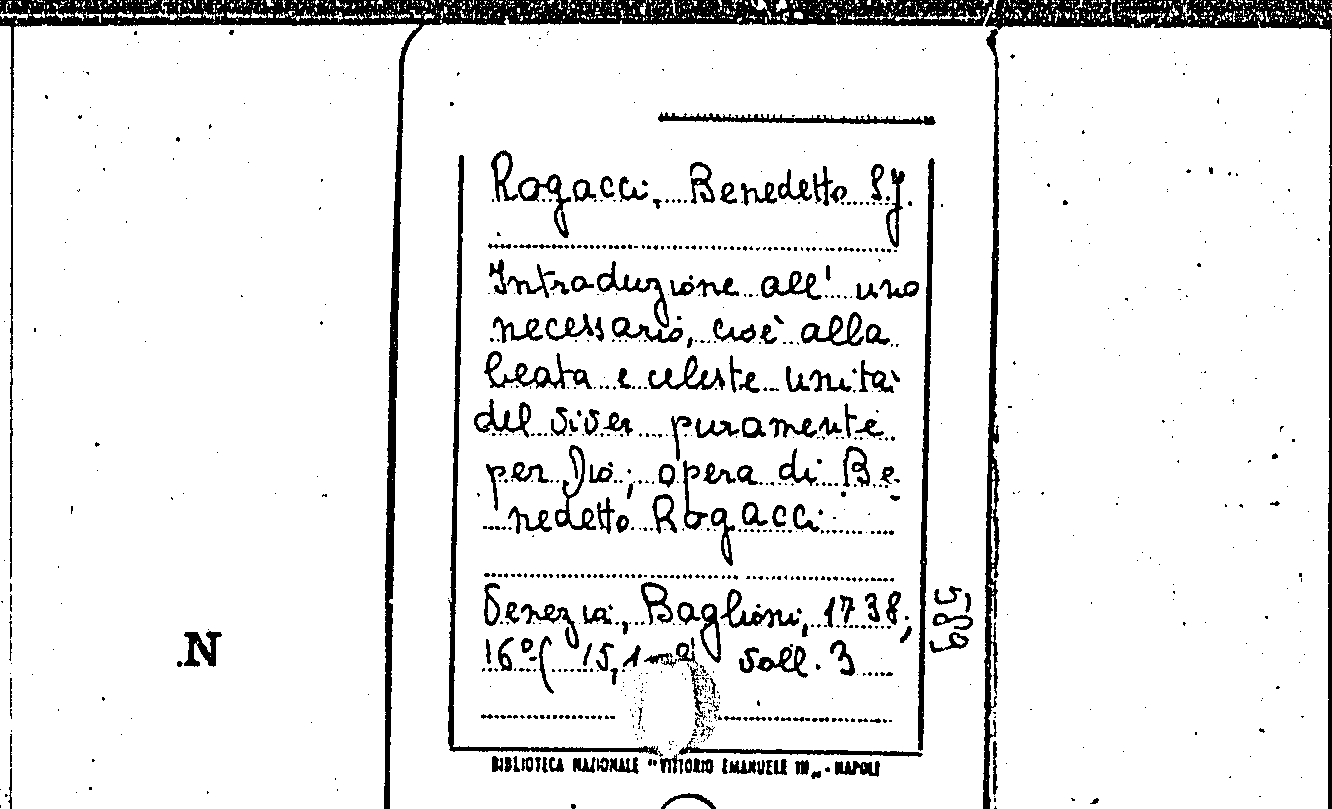 Rogacci, Benedetto S.J.
Intraduzione all' uno
necessario, cioè alla
beata e celeste unità
del viver puramente
per Dio; opera di Be-
nedetto Rogacci
Venezia, Baglioni, 1738;
16°( 15,1 voll. 3
589
N
BIBLIOTECA NAZIONALE "VITTORIO EMANUELE III" - NAPOLI